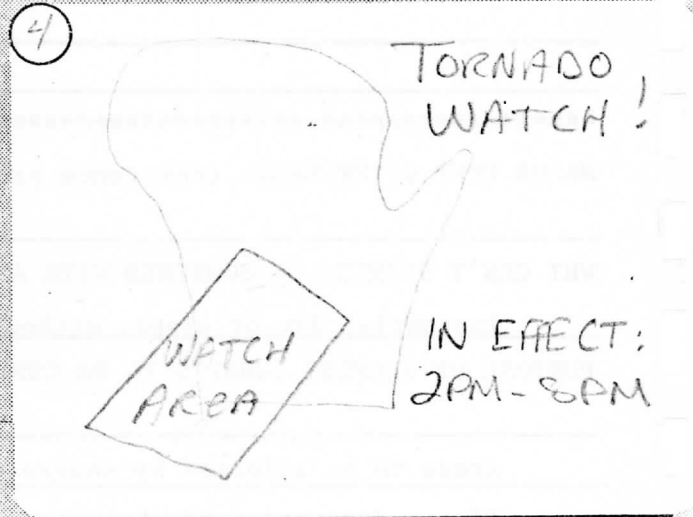 4
TORNADO
WATCH!
WATCH
AREA
IN EFFECT:
2PM-8PM